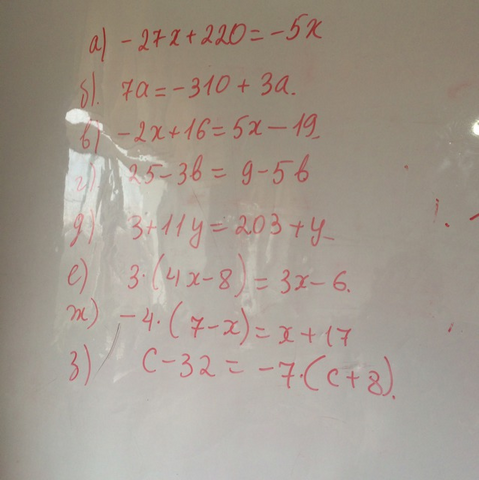 а) -27x+220=-5x
б). 7a=-310+3a.
в) -2x+16=5x-19
г) 25-3b=9-5b
д) 3+11y=203+y
е) 3·(4x-8)=3x-6.
ж) -4·(7-x)=x+17
з) c-32=-7·(c+8).